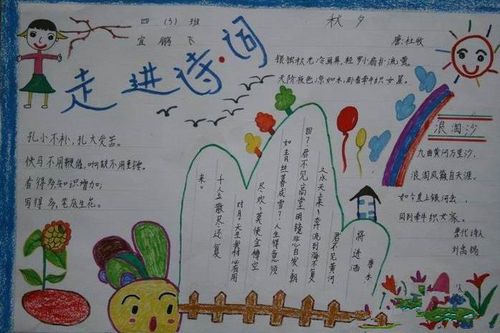 四（3）班
走进诗·词
秋夕
唐:杜牧
银烛秋光冷画屏，轻罗小扇扑流萤
天阶夜色凉如水，卧看牵牛织女星。
扎小不补，扎大受苦。
快马不用鞭催，响鼓不用重捶。
看得多知识增加，
写得多，笔底生花。
将进酒
李白
君不见黄河
之水天来，奔流到海不复
回？君不见高堂明镜悲白发，朝
如青丝暮成雪？人生得意须
尽欢，莫使金樽空
对月，天生我材必有用
千金散尽还复
来。
浪淘沙
九曲黄河万里沙，
浪淘风簸自天涯，
如今直上银河去，
同到牵牛织女家。
唐代诗人
刘禹锡